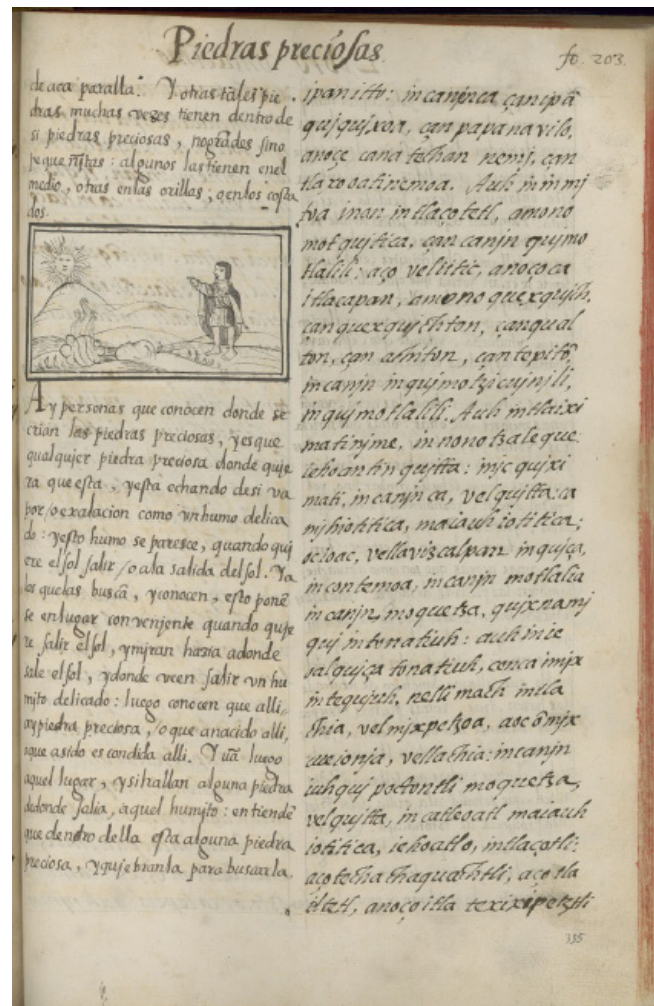 Piedras preciosas
fo. 203.
de aca paralla. Y otras tales pie
dras muchas vezes tienen dentro de
si piedras preciosas, nogrãdes sino
pequeñitas: algunos las tienen enel
medio, otras enlas orillas, o en los costa
dos.
Ay personas que conocen donde se
crian las piedras preciosas, y es que
qualqujer piedra preciosa donde quie
ra que esta, y esta echando desi va
por /o exalacion como vn humo delica
do: y esto humo se paresce, quando quj
ere el sol salir /o ala salida del sol. Ya
los quelas buscã, y conocen, esto ponẽ
se en lugar convenjente quando quje
re salir el sol, y mjran hazia adonde
sale el sol, y donde veen salir vn hu
mjto delicado: luego conocen que alli,
ay piedra preciosa, /o que a nacido alli,
oque a sido escondida alli. Y uã luego
aquel lugar, y si hallan alguna piedra
dedonde salia, aquel humjto: entiendẽ
que dentro della esta alguna piedra
preciosa, y qujebranla para buscarla.
ipan itto: in canjn ca çan ipã
qujqujxoa, çan papanavilo,
anoçe cana techan nemj, çan
tlaxoatinemoa. Auh in in mj
toa inan in tlaçotetl, amo no
motqujtica, çan canjn qujmo
tlalili: aço vel iitic, anoço ca
itlacapan, amo no quexqujch,
çan quexqujchton, çan qual
ton, çan achiton, çan tepitõ,
in canjn inqujmotzicujnjli,
inqujmotlalili. Auh in tlaixi
matinjme, in nonotzaleque
iehoantin qujtta: injc qujxi
mati, in canjn ca, vel qujtta: ca
mjhiotitica, maiauhiotitica;
oc ioac, vellavizcalpan in qujça,
in contemoa, in canjn motlalia
in canjn moquetza, qujxnamj
quj in tonatiuh: auh in ie
oalqujça tonatiuh, cenca imjx
intequjuh, nelli mach intla
chia, vel mjxpetzoa, aocmo mjx
cueionja, vellachia: in canjn
iuhquj poctontli moquetza,
vel qujtta, in catleoatl maiauh
iotitica, iehoatl o, in tlaçotli:
aço techachaquachtli, aço tla
eltetl, anoço itla texixipetztli
355